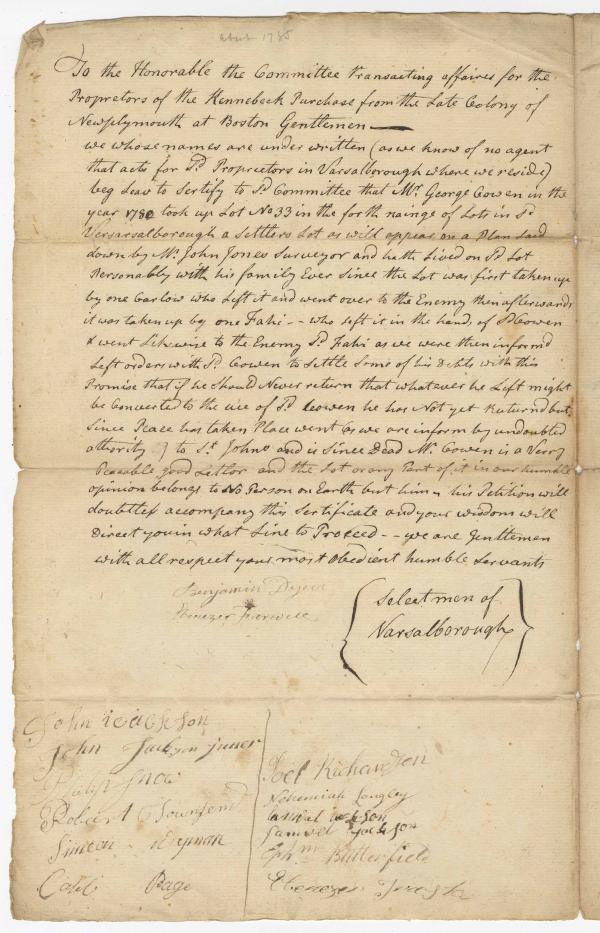 about 1785
To the Honorable the Committee transacting affaires for the
Proprietors of the Kennebeck Purchase from the Late Colony of
Newplymouth at Boston Gentlemen
we whose names are under written (as we know of no agent
that acts for Sd. Proprietors in Varsalborough where we reside)
beg Leav to Sertify to Sd Committee that Mr. George Cowen in the
year 1780 took up Lot No 33 in the forth rainge of Lots in Sd
Versarsalborough a Settlers Lot as will appear on a Plan Laid
down by Mr. John Jones Surveyor and hath Lived on Sd Lot
Personably with his family Ever Since the Lot was first taken up
by one Carlow who Left it and went over to the Enemy then afterwards
it was taken up by one Fahi -- who left it in the hands of Sd Cowen
& went Likewise to the Enemy Sd. Fahi as we were then informd
Left orders with Sd. Cowen to Settle Some of his Debts with this
Promise that if he Should Never return that whatever he Left might
be Converted to the uice of Sd. Cowen he has Not yet Returnd but
Since Peace has taken Place went (as we are inform by undoubted
athority) to St. Johns and is Since Dead Mr. Cowen is a Verry
Peaceable good Settlor and the Lot or any Part of it in our humble
opinion belongs to No Person on Earth but him his Petition will
doubtless accompany this Sertificate and your wisdom will
Direct you in what Line to Proceed -- we are Gentlemen
with all respect your most obedient humble Servants
Benjamin
Ebenezer Farwell
Selectmen of
Varsalborough
John Jackson
John Jackson juner
Philip Snow
Robert Townsend
Simeon
Caleb Page
Joel Richardson
Nehemiah Longley
Samuel
Samuel Jackson
Ephm Butterfield
Ebenezer